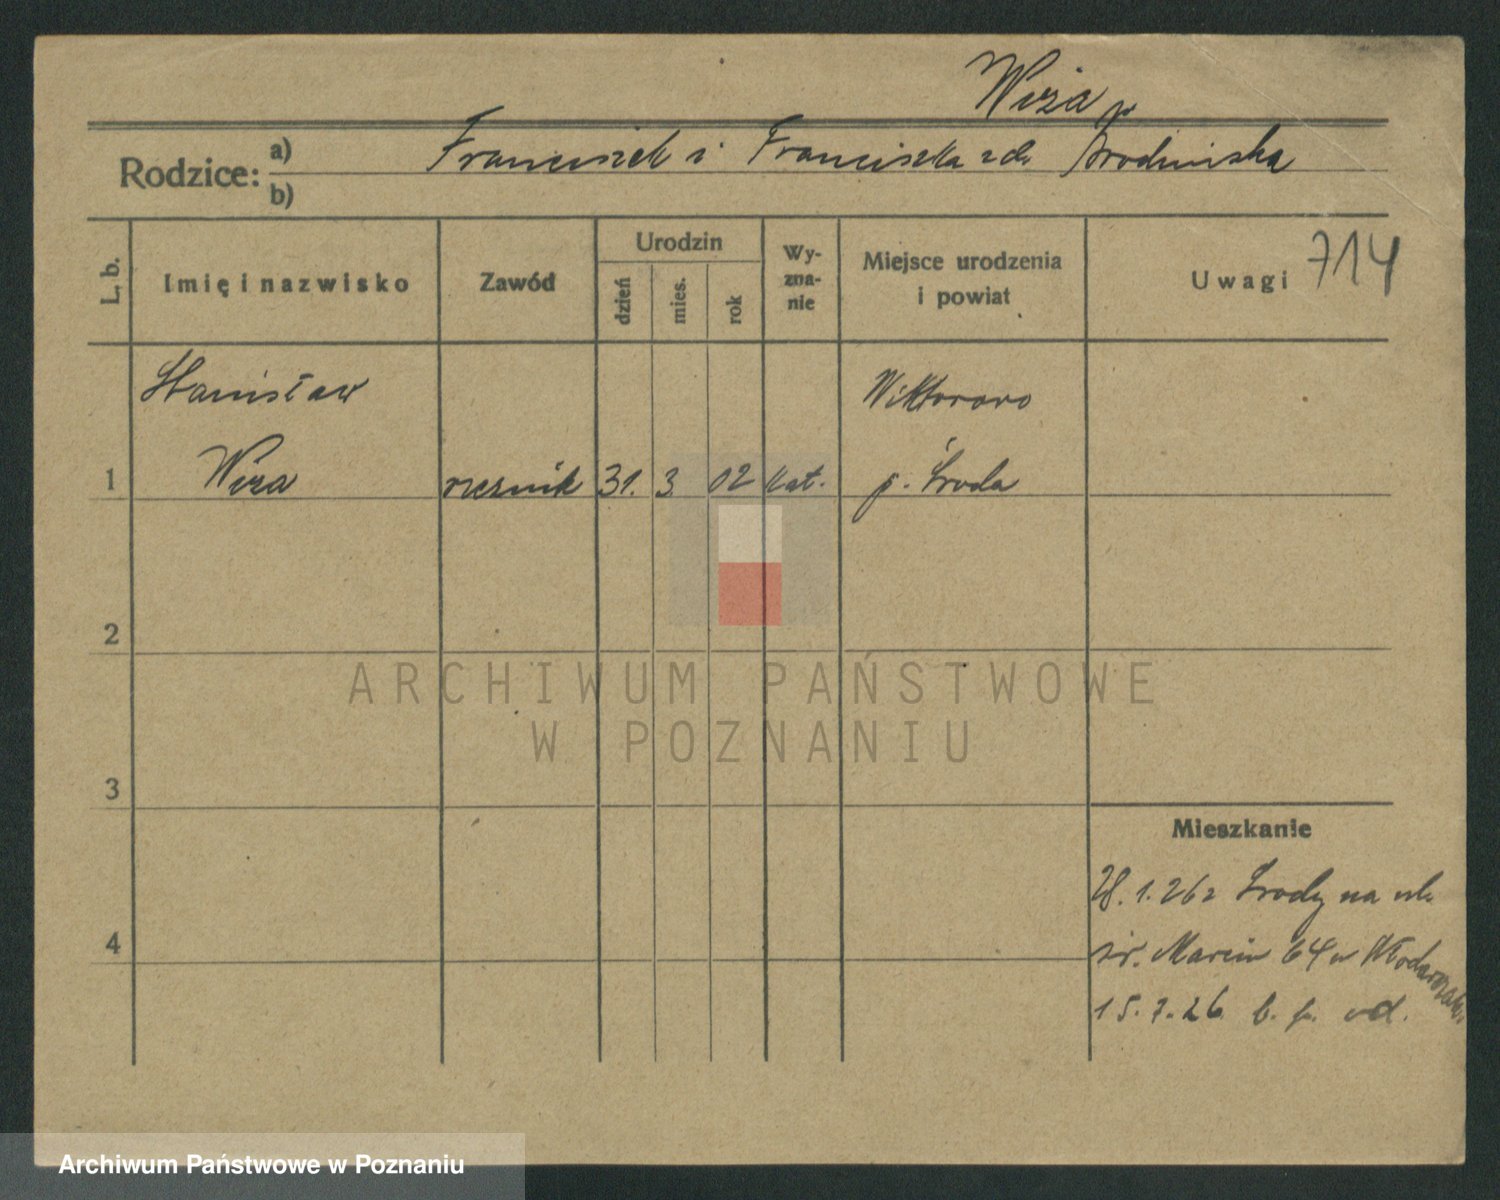 Wiza
Rodzice: a) Franciszek i Franciszka z d.
b)
L. b.
Imię i nazwisko
Zawód
Urodzin
dzień
mies.
rok
Wy-
zna-
nie
Miejsce urodzenia
i powiat
Uwagi 714
Stanisław
Wiktorowo
1 Wiza rzeźnik 31. 3. 02 kat. p. Środa
2
3
4
Mieszkanie
28.1.26 z Środy na ul.
św. Marcin 64 u
15.7.26 b. p. od.
ARCHIWUM PAŃSTWOWE
W POZNANIU
Archiwum Państwowe w Poznaniu